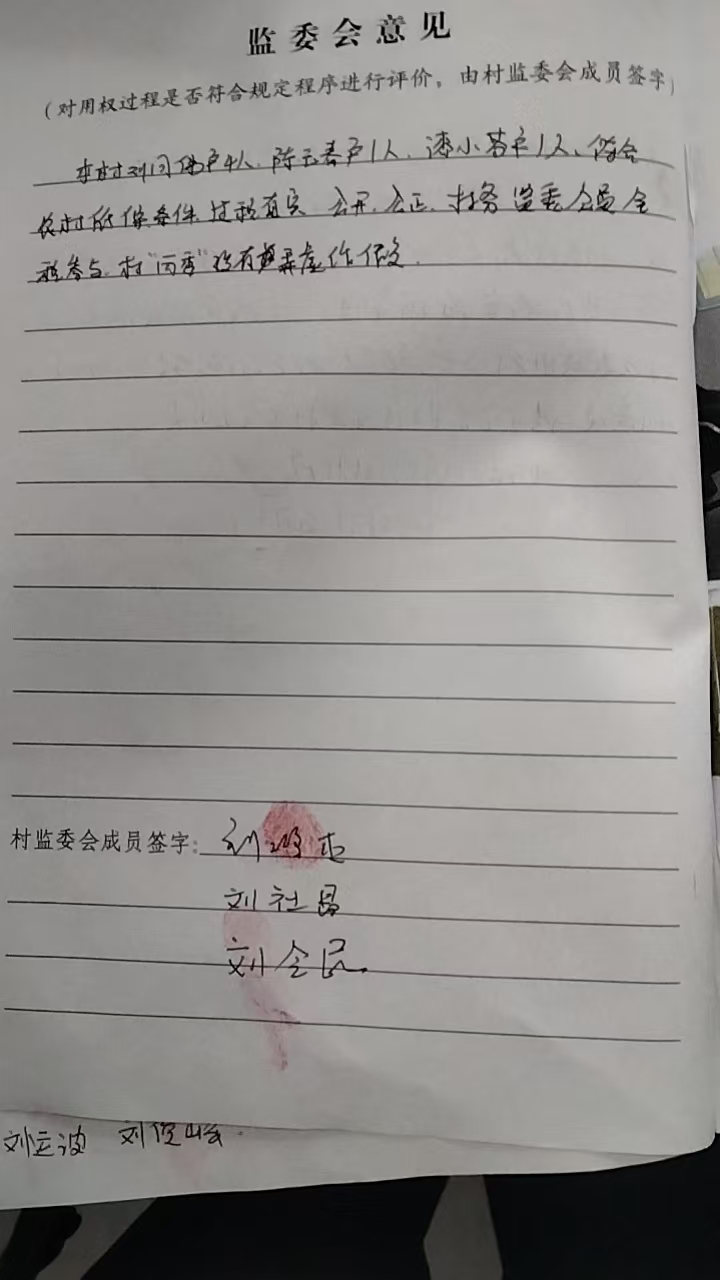 监委会意见
(对用权过程是否符合规定程序进行评价，由村监委会成员签字)
本村对闫 户4人、陈云春户1人、漆小芬户1人、符合
农村低保条件 过程真实 公开、公正、村务监委会员全
程参与、村“两委”没有弄虚作假.
村监委会成员签字: 刘 
刘社昌
刘全民.
刘运波 刘俊峰